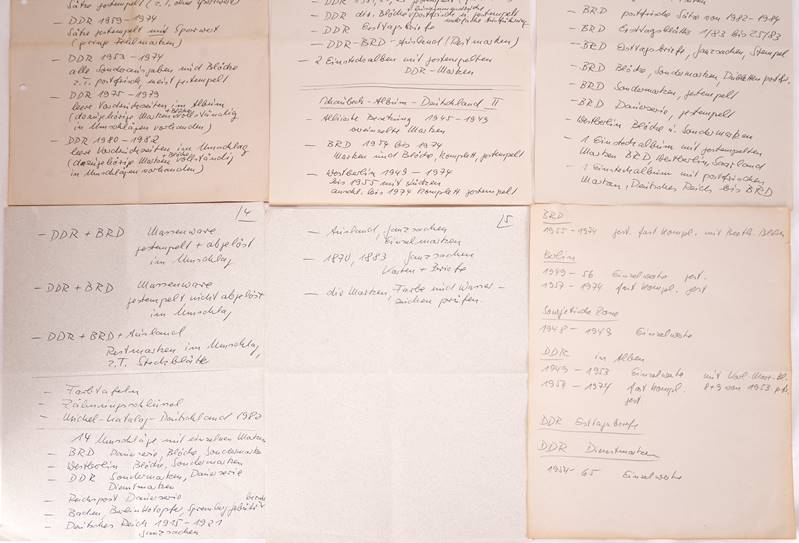 Sätze gestempelt (z.T. ohne
- DDR 1959 - 1974
Sätze gestempelt mit Sperrwert
- DDR 1953 - 1974
alle Sonderausgaben und Blöcke
z.T. postfrisch, meist gestempelt
- DDR 1975 - 1979
leere Vordruckseiten im Album
(dazugehörige Marken + Blöcke vollständig
in Umschlägen vorhanden)
- DDR 1980 - 1982
leere Vordruckseiten im Umschlag
(dazugehörige Marken + Blöcke vollständig
in Umschlägen vorhanden)
- DDR dto. Blöcke postfrisch u. gestempelt
- DDR Ersttagsbriefe
- DDR-BRD-Ausland (Restmarken)
- 2 Einsteckalben mit gestempelten
DDR-Marken
Schaubek-Album-Deutschland II
- Alliierte Besatzung 1945-1949
vereinzelte Marken
- BRD 1954 bis 1974
Marken und Blöcke, komplett, gestempelt
- Westberlin 1949 - 1974
bis 1955 mit Lücken
anschl. bis 1974 komplett gestempelt
- BRD postfrische Sätze von 1982-1984
- BRD Ersttagsblätter 1/83 bis 25/83
- BRD Ersttagsbriefe, Ganzsachen, Stempel
- BRD Blöcke, Sondermarken, Dauerserien postfr.
- BRD Sondermarken, gestempelt
- BRD Dauerserie, gestempelt
- Westberlin Blöcke u. Sondermarken
- 1 Einsteckalbum mit gestempelten
Marken BRD, Westberlin, Saarland
- 1 Einsteckalbum mit postfrischen
Marken, Deutsches Reich bis BRD
/4
- DDR + BRD Massenware
gestempelt + abgelöst
im Umschlag
- DDR + BRD Massenware
gestempelt nicht abgelöst
im Umschlag
- DDR + BRD + Ausland
Restmarken im Umschlag,
z.T. Steckblätter
- Farbtafeln
- Zähnungsschlüssel
- Michel-Katalog-Deutschland 1982
14 Umschläge mit einzelnen Marken
- BRD Dauerserie, Blöcke, Sondermarken
- Westberlin Blöcke, Sondermarken
- DDR Sondermarken, Dauerserie
Dienstmarken
- Reichspost Dauerserie
- Bochen, Berlin Hotopfer,
- Deutsches Reich 1915-1921
Ganzsachen
/5
- Ausland, Ganzsachen
Einzelmarken
- 1870, 1883 Ganzsachen
Karten + Briefe
- die Marken, Farbe und Wasser-
zeichen prüfen.
BRD
1955 - 1974 gest. fast kompl. mit
Berlin
1949 - 56 Einzelwerte gest.
1957 - 1974 fast kompl. gest
Sowjetische Zone
1948 - 1949 Einzelwerte
DDR in Alben
1949 - 1953 Einzelwerte mit Karl-Marx-Bl.
1954 - 1974 fast kompl. 8+9 von 1953
gest
DDR Ersttagsbriefe
DDR Dienstmarken
1954-65 Einzelwerte